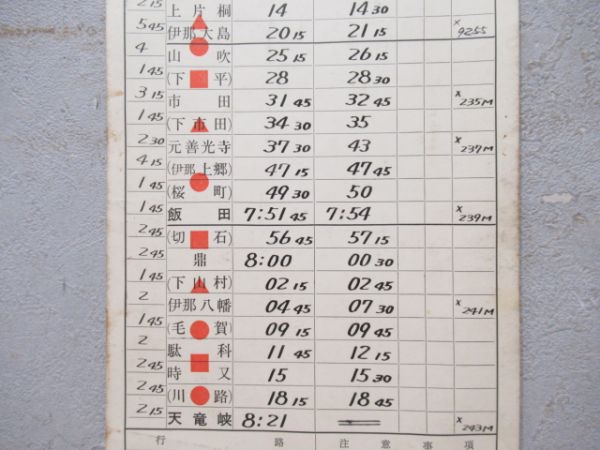 2 15
上片桐 14 14 30
5 45
伊那大島 20 15 21 15 × 9255
4
山吹 25 15 26 15
1 45
(下平) 28 28 30
3 15
市田 31 45 32 45 × 235M
1 45
(下市田) 34 30 35
2 30
元善光寺 37 30 43 × 237M
4 15
(伊那上郷) 47 15 47 45
1 45
(桜町) 49 30 50
1 45
飯田 7:51 45 7:54 × 239M
2 45
(切石) 56 45 57 15
2 45
鼎 8:00 00 30
1 45
(下山村) 02 15 02 45
2
伊那八幡 04 45 07 30 × 241M
1 45
(毛賀) 09 15 09 45
2
駄科 11 45 12 15
2 45
時又 15 15 30
2 45
(川路) 18 15 18 45
2 15
天竜峡 8:21 × 243M
行路注意事項